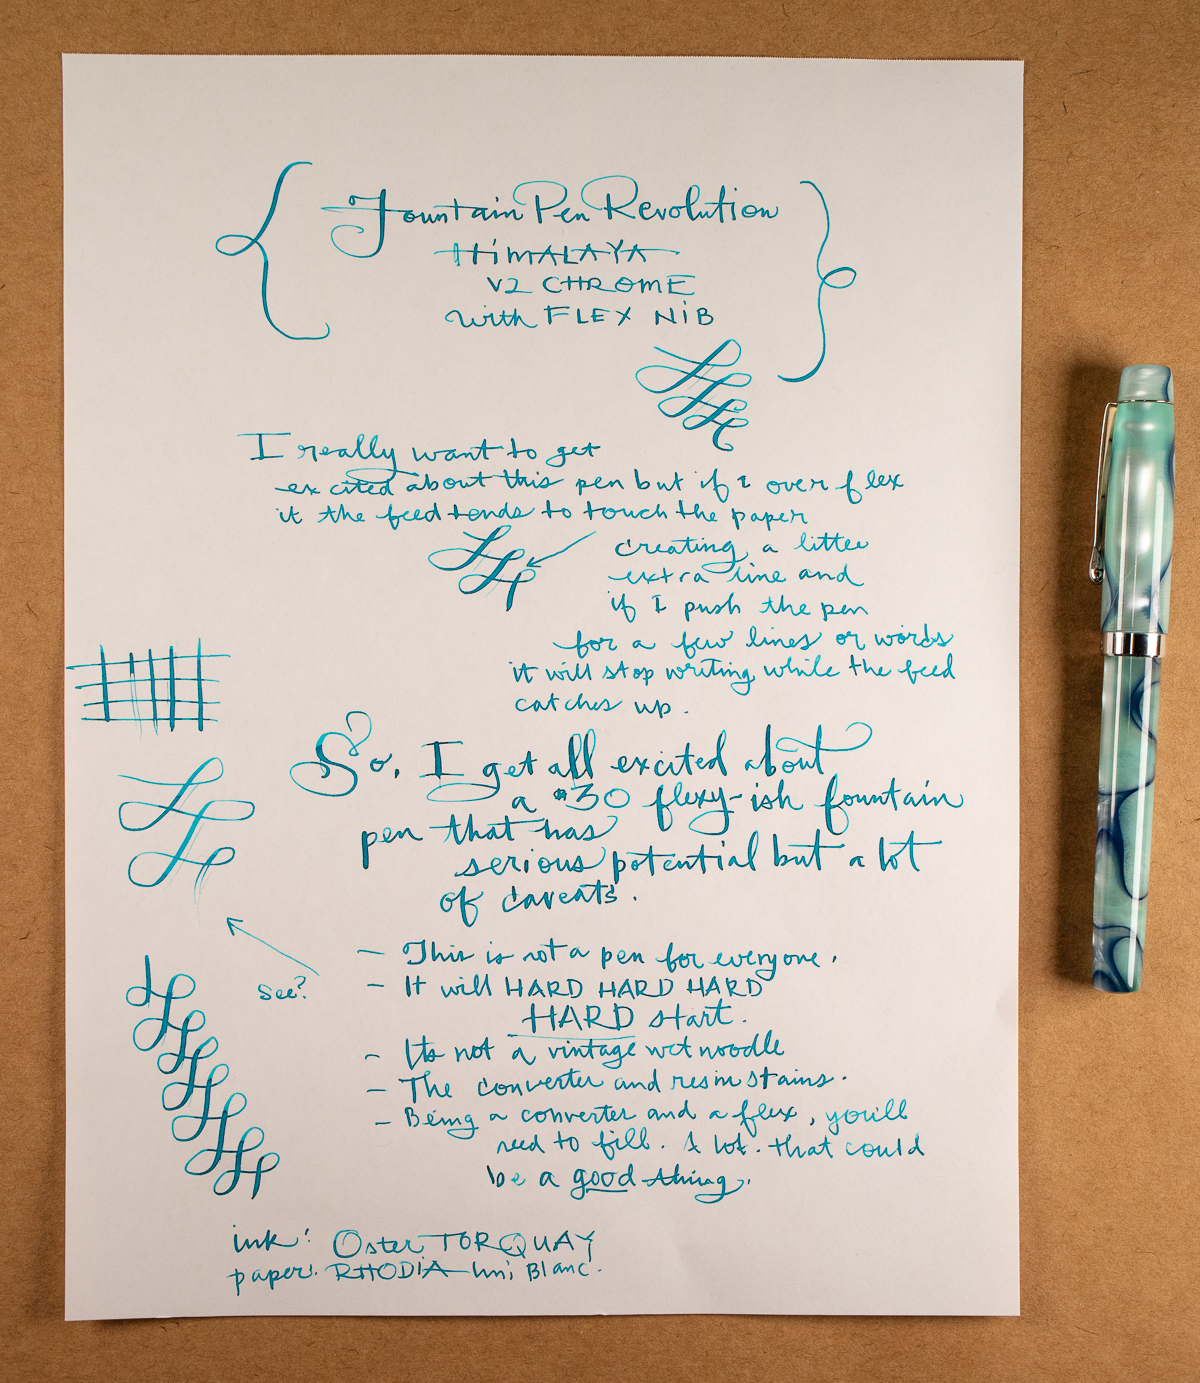 Fountain Pen Revolution
HiMALAYA
V2 CHROME
with FLEX NiB
I really want to get
excited about this pen but if I over flex
it the feed tends to touch the paper
creating a little
extra line and
if I push the pen
for a few lines or words
it will stop writing while the feed
catches up.
So, I get all excited about
a $30 flexy-ish fountain
pen that has
serious potential but a lot
of caveats.
- This is not a pen for everyone.
- It will HARD HARD HARD
HARD start.
- Its not a vintage wet noodle
- The converter and resin stains.
- Being a converter and a flex, you'll
need to fill. A lot. that could
be a good thing.
See?
ink: Oster TORQUAY
paper: RHODIA Uni Blanc.